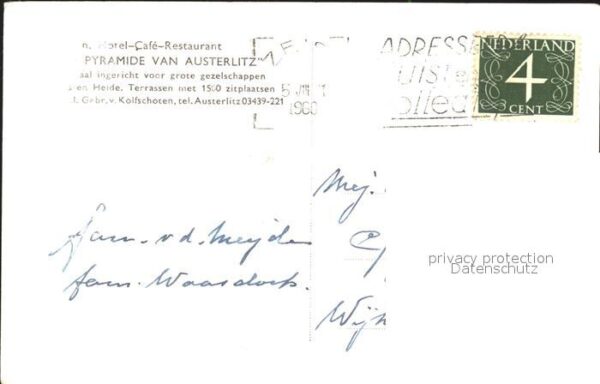 n. Hotel-Café-Restaurant
PYRAMIDE VAN AUSTERLITZ"
aal ingericht voor grote gezelschappen
en Heide. Terrassen met 1500 zitplaatsen
Gebr. v. Kolfschoten, tel. Austerlitz 03439-221
ADRESSE
UIST
NEDERLAND
4
CENT
Mej.
fam. v.d. Meijden
fam. Waasdorp.
Wijk
privacy protection
Datenschutz